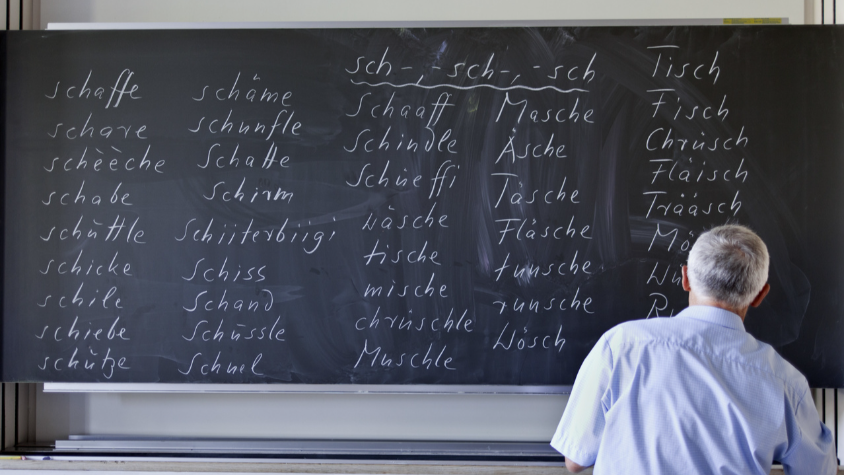 schaffe
schare
schèèche
schabe
schùttle
schicke
schile
schiebe
schùtze
schäme
schunfle
Schatte
Schirm
Schiiterbiigi
Schiss
Schand
Schüssle
sch-, -sch-, -sch
Schaaff
Schindle
Schieffi
wäsche
tische
mische
chrüschle
Muschle
Masche
Äsche
Täsche
Fläsche
tunsche
runsche
Wösch
Tisch
Fisch
Chrüsch
Fläisch
Träasch